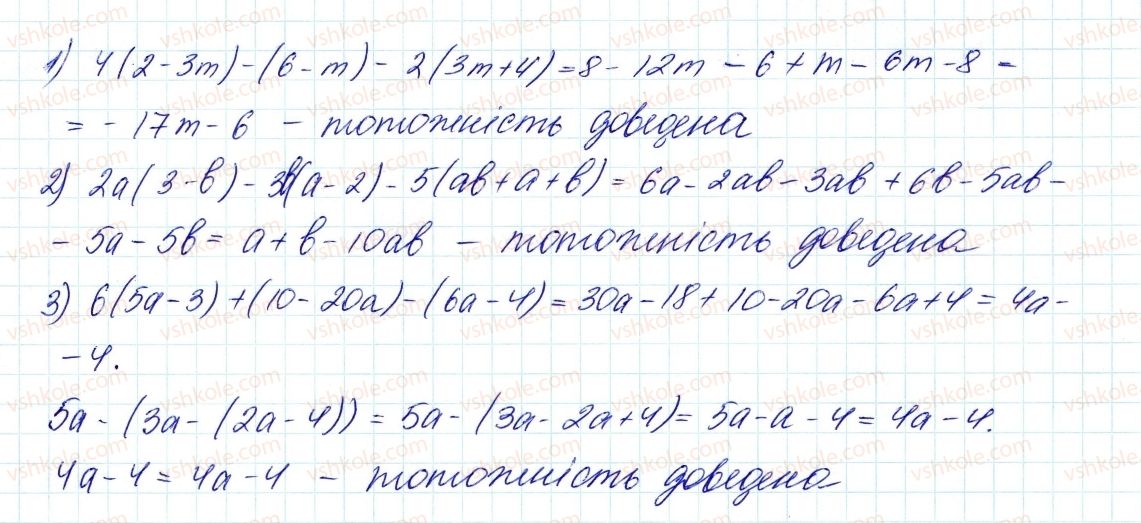 1) 4(2-3m)-(6-m)-2(3m+4)=8-12m-6+m-6m-8=
=-17m-6 - тотожність доведена
2) 2a(3-b)-3b(a-2)-5(ab+a+b)=6a-2ab-3ab+6b-5ab-
-5a-5b=a+b-10ab - тотожність доведена
3) 6(5a-3)+(10-20a)-(6a-4)=30a-18+10-20a-6a+4=4a-
-4.
5a-(3a-(2a-4))=5a-(3a-2a+4)=5a-a-4=4a-4.
4a-4=4a-4 - тотожність доведена
vshkole.com